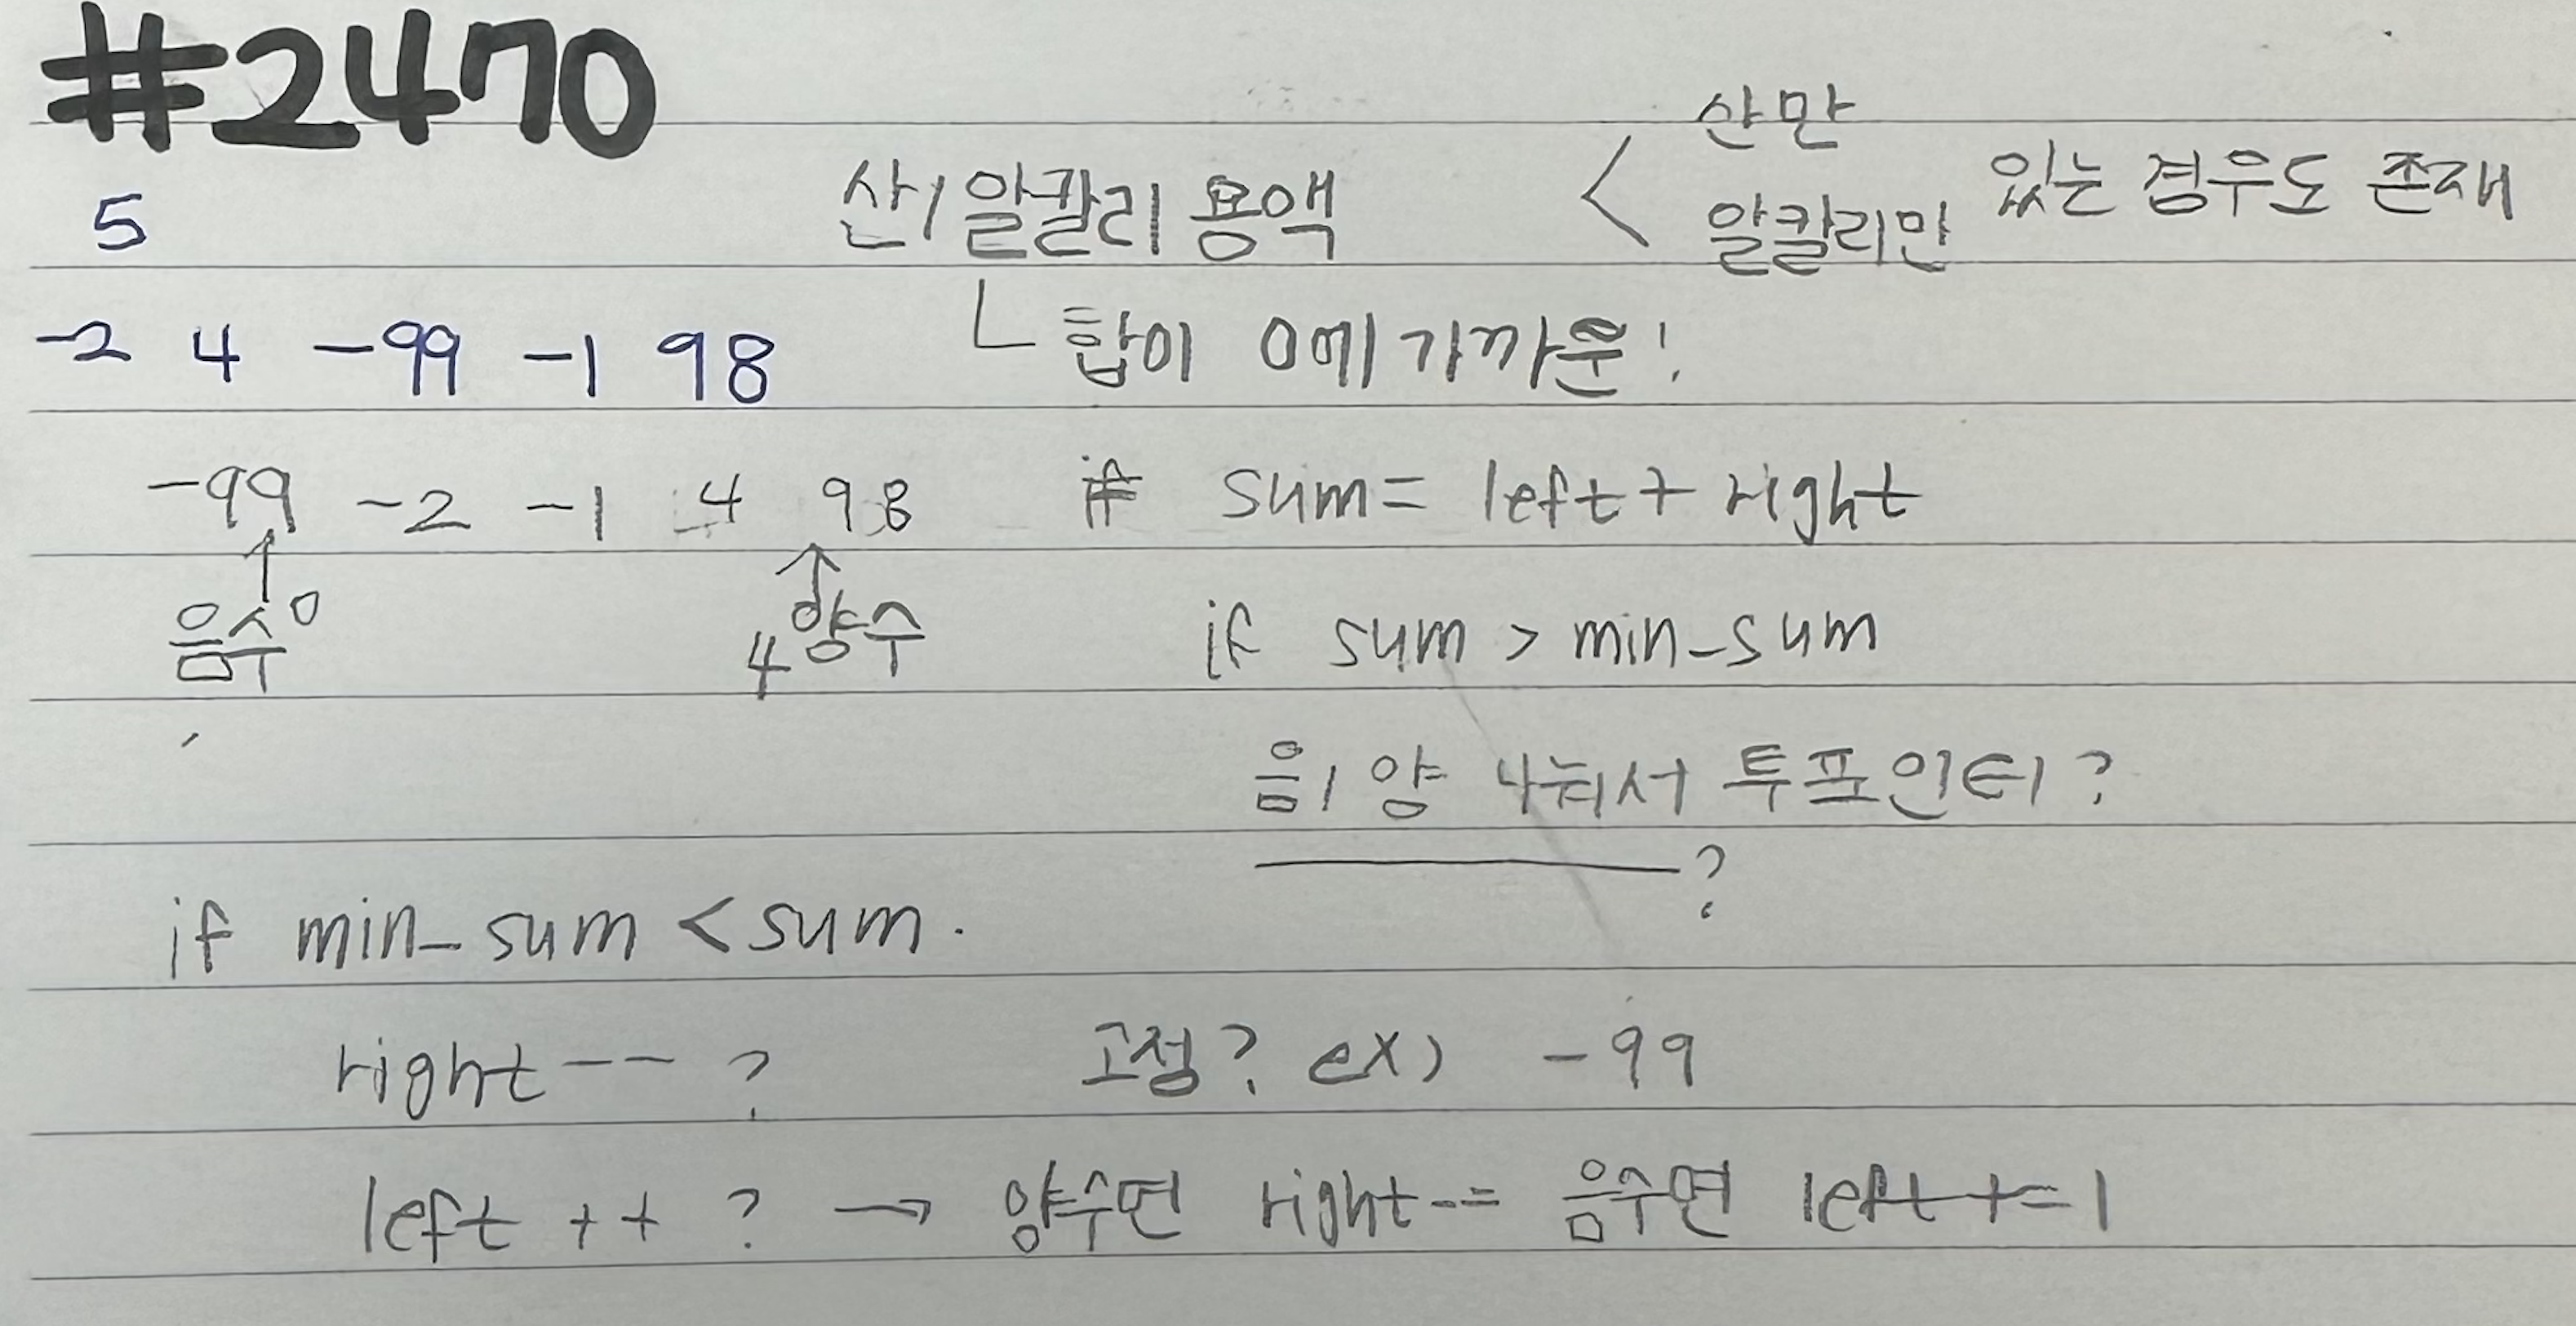 #2470
산만
산/알칼리 용액 < 있는 경우도 존재
알칼리만
5
-2 4 -99 -1 98
ㄴ 합이 0에 가까운!
-99 -2 -1 4 98
if sum = left + right
음수 0
4 양수
if sum > min_sum
음/양 나눠서 투포인터?
?
if min_sum < sum.
right -- ?
고정? ex) -99
left ++ ? → 양수면 right -= 음수면 left += 1